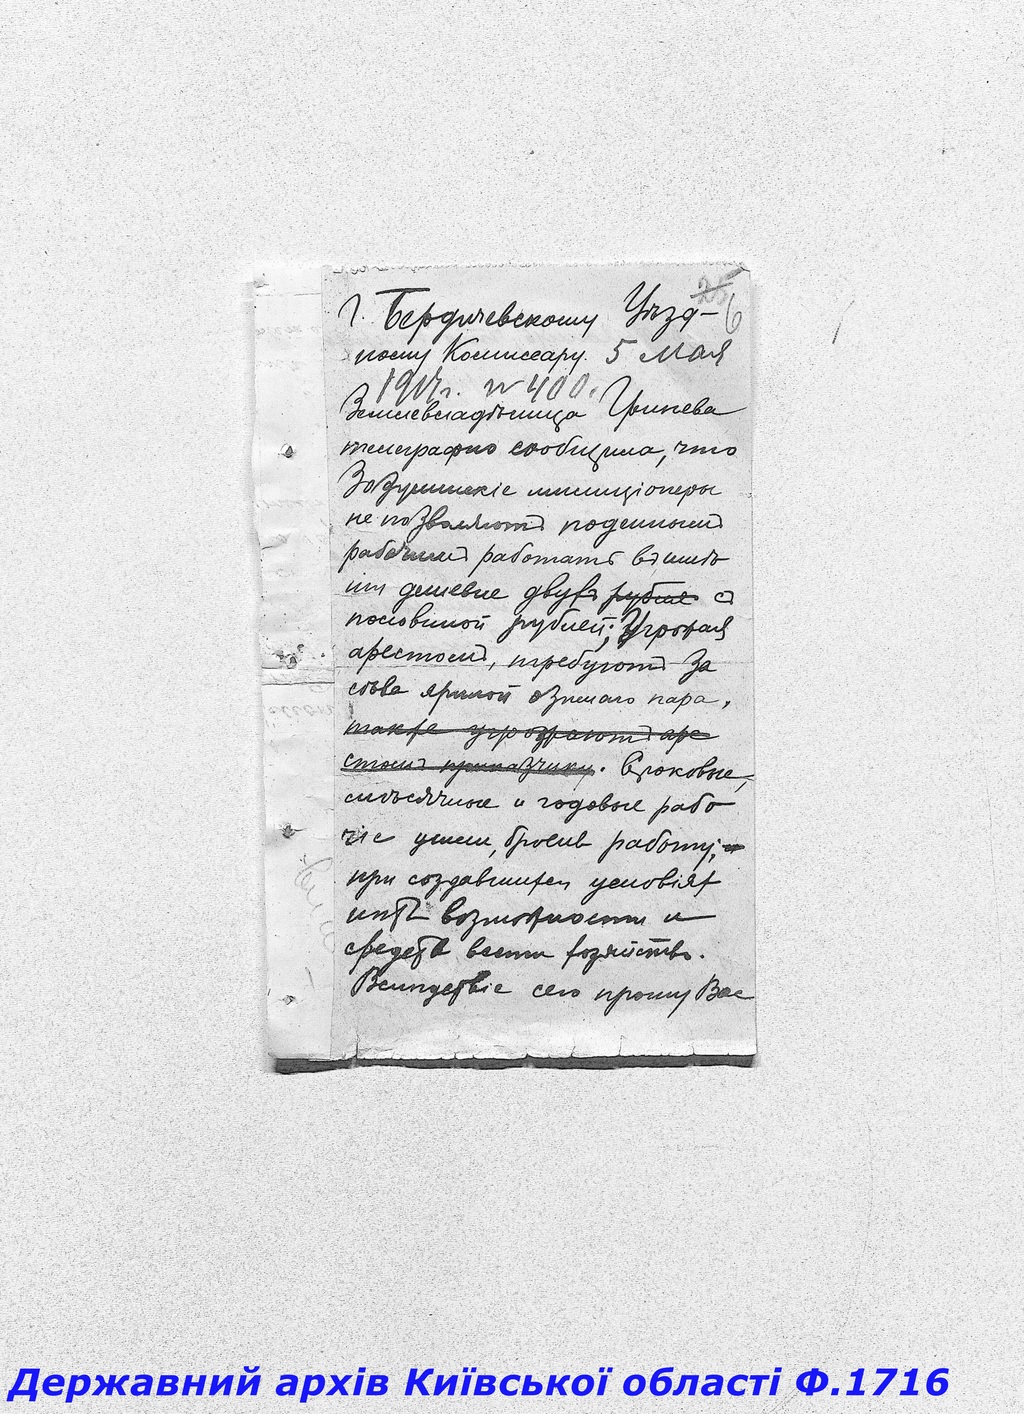 25
6
Г. Бердичевскому Уѣзд-
ному Комиссару. 5 Мая
1917г. № 400.
Землевладѣлица Гринева
телеграфно сообщила, что
милиціонеры
не позволяютъ поденнымъ
рабочимъ работать въ имѣ
ніи дешевле двухъ рублей съ
половиной рублей; Угрожая
арестомъ, требуютъ За
сѣва ярыной озимаго пара,
также угрожаютъ аре
стомъ приказчику. Строковые,
мѣсячные и годовые рабо
чіе ушли, бросив работу; и
при создавшихся условіях
нѣтъ возможности и
средств вести хозяйство.
Вслѣдствіе сего прошу Вас
Державний архів Київської області Ф.1716